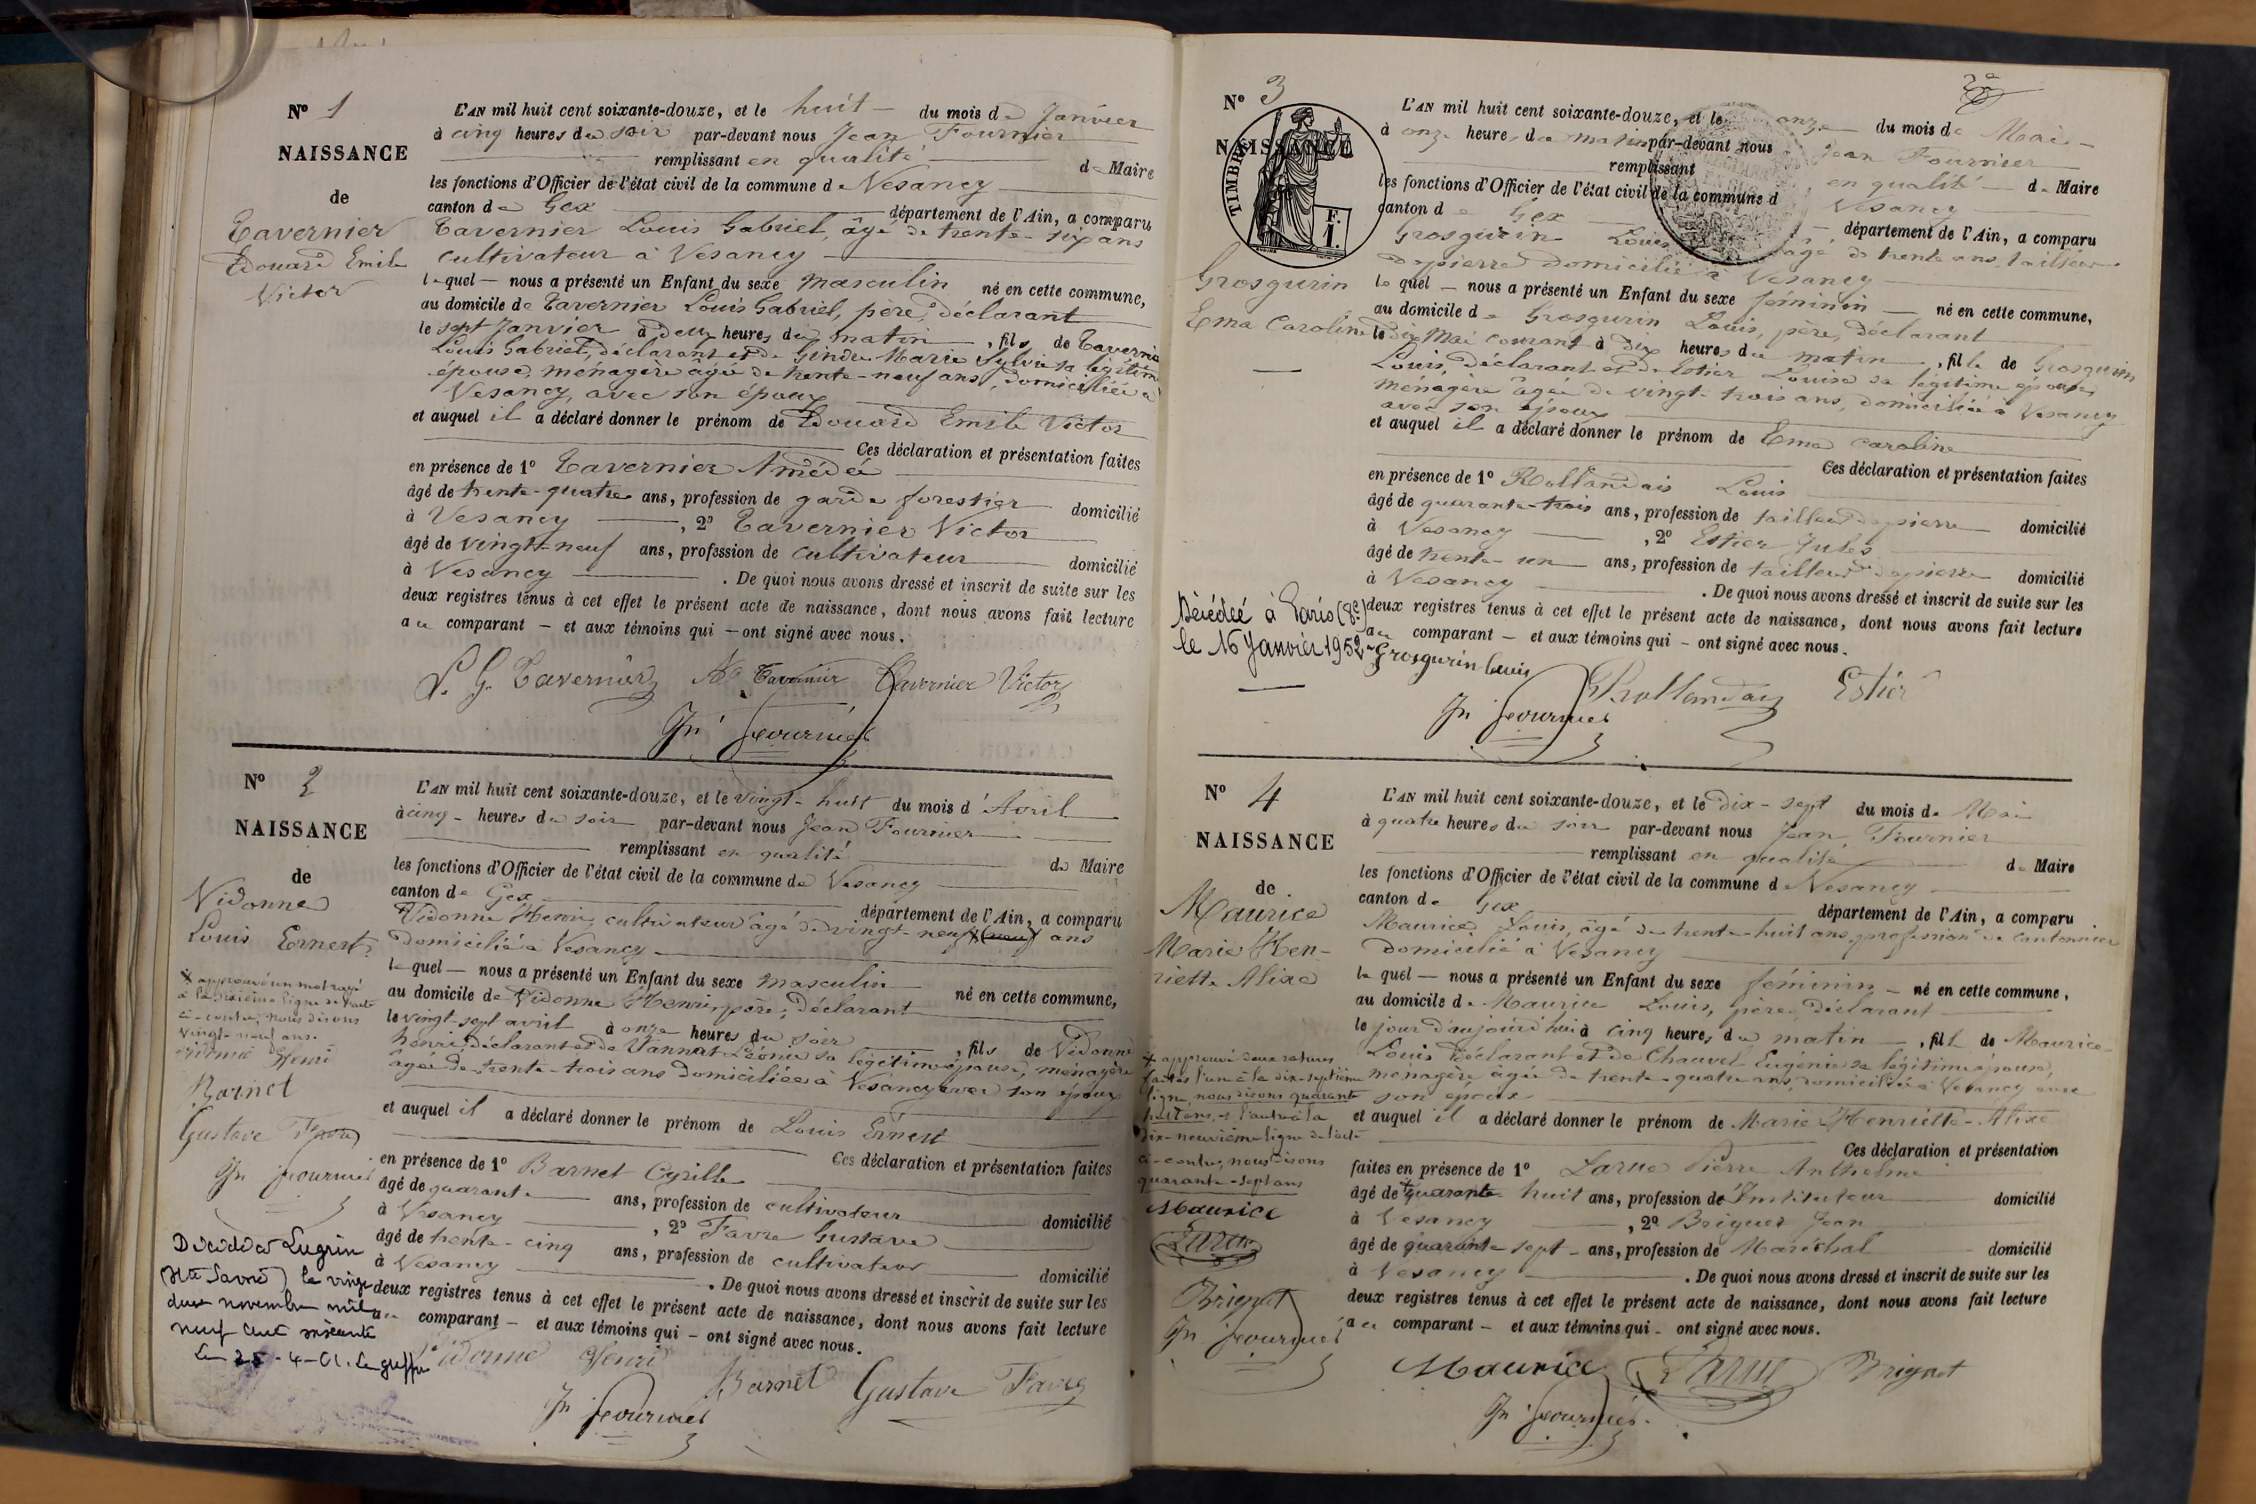 N° 1
NAISSANCE
de
Tavernier
Edouard Emile
Victor
L'AN mil huit cent soixante-douze, et le huit du mois de Janvier
à cinq heures du soir par-devant nous Jean Fournier
remplissant en qualité de Maire
les fonctions d'Officier de l'état civil de la commune de Vesancy
canton de Gex département de l'Ain, a comparu
Tavernier Louis Gabriel, âgé de trente-six ans
cultivateur à Vesancy
lequel nous a présenté un Enfant du sexe masculin né en cette commune,
au domicile de Tavernier Louis Gabriel, père, déclarant
le sept Janvier à deux heures du matin, fils de Tavernier
Louis Gabriel, déclarant et de Gindre Marie Sylvie sa légitime
épouse, ménagère âgée de trente-neuf ans, domiciliée à
Vesancy, avec son époux
et auquel il a déclaré donner le prénom de Edouard Emile Victor
Ces déclaration et présentation faites
en présence de 1° Tavernier Amédée
âgé de trente-quatre ans, profession de garde forestier domicilié
à Vesancy, 2° Tavernier Victor
âgé de vingt-neuf ans, profession de cultivateur domicilié
à Vesancy. De quoi nous avons dressé et inscrit de suite sur les
deux registres tenus à cet effet le présent acte de naissance, dont nous avons fait lecture
au comparant — et aux témoins qui — ont signé avec nous.
L. G. Tavernier Ae Tavernier Tavernier Victor
Jn Fournier
N° 2
NAISSANCE
de
Vidonne
Louis Ernest
x approuvé un mot rayé
à la sixième ligne de l'acte
ci-contre, nous disons
vingt-neuf ans.
Vidonne Henri
Barnet
Gustave Favre
Jn Fournier
Décédé à Lugrin
(Hte Savoie) le vingt
deux novembre mil
neuf cent soixante
Le 25-4-61. Le greffier
L'AN mil huit cent soixante-douze, et le vingt-huit du mois d'Avril
à cinq heures du soir par-devant nous Jean Fournier
remplissant en qualité de Maire
les fonctions d'Officier de l'état civil de la commune de Vesancy
canton de Gex département de l'Ain, a comparu
Vidonne Henri, cultivateur âgé de vingt-neuf x (neuf) ans
domicilié à Vesancy
lequel — nous a présenté un Enfant du sexe masculin né en cette commune,
au domicile de Vidonne Henri, père, déclarant
le vingt-sept avril à onze heures du soir, fils de Vidonne
Henri, déclarant et de Vannat Léonie sa légitime épouse, ménagère
âgée de trente-trois ans domiciliée à Vesancy avec son époux
et auquel il a déclaré donner le prénom de Louis Ernest
Ces déclaration et présentation faites
en présence de 1° Barnet Cyrille
âgé de quarante ans, profession de cultivateur domicilié
à Vesancy, 2° Favre Gustave
âgé de trente-cinq ans, profession de cultivateur domicilié
à Vesancy. De quoi nous avons dressé et inscrit de suite sur les
deux registres tenus à cet effet le présent acte de naissance, dont nous avons fait lecture
au comparant — et aux témoins qui — ont signé avec nous.
Vidonne Henri Barnet Gustave Favre
Jn Fournier
N° 3
NAISSANCE
TIMBRE
F.
1.
Grosgurin
Ema Caroline
Décédée à Paris (8e)
le 16 Janvier 1952
L'AN mil huit cent soixante-douze, et le onze du mois de Mai
à onze heures du matin par-devant nous Jean Fournier
remplissant en qualité de Maire
les fonctions d'Officier de l'état civil de la commune d Vesancy
canton de Gex département de l'Ain, a comparu
Grosgurin Louis âgé de trente ans, tailleur
de pierre domicilié à Vesancy
lequel — nous a présenté un Enfant du sexe féminin — né en cette commune,
au domicile de Grosgurin Louis, père, déclarant
le dix Mai courant à dix heures du matin, fille de Grosgurin
Louis, déclarant et de Estier Louise sa légitime épouse,
ménagère âgée de vingt-trois ans, domiciliée à Vesancy
avec son époux
et auquel il a déclaré donner le prénom de Ema Caroline
Ces déclaration et présentation faites
en présence de 1° Rollandais Louis
âgé de quarante-trois ans, profession de tailleur de pierre domicilié
à Vesancy, 2° Estier Jules
âgé de trente-un ans, profession de tailleur de pierre domicilié
à Vesancy. De quoi nous avons dressé et inscrit de suite sur les
deux registres tenus à cet effet le présent acte de naissance, dont nous avons fait lecture
au comparant — et aux témoins qui — ont signé avec nous.
Grosgurin Louis Rollandais Estier
Jn Fournier
N° 4
NAISSANCE
de
Maurice
Marie Hen-
riette Alixe
x approuvé deux ratures
faites l'une à la dix-septième
ligne, nous disons quarante
huit ans, et l'autre à la
dix-neuvième ligne de l'acte
ci-contre, nous disons
quarante-sept ans
Maurice
Larue
Brignet
Jn Fournier
L'AN mil huit cent soixante-douze, et le dix-sept du mois de Mai
à quatre heures du soir par-devant nous Jean Fournier
remplissant en qualité de Maire
les fonctions d'Officier de l'état civil de la commune d Vesancy
canton de Gex département de l'Ain, a comparu
Maurice Louis, âgé de trente-huit ans, profession de cantonnier
domicilié à Vesancy
lequel — nous a présenté un Enfant du sexe féminin — né en cette commune,
au domicile de Maurice Louis, père, déclarant
le jour d'aujourd'hui à cinq heures du matin, fille de Maurice
Louis déclarant et de Chauvet Eugénie sa légitime épouse,
ménagère, âgée de trente-quatre ans, domiciliée à Vesancy avec
son époux
et auquel il a déclaré donner le prénom de Marie Henriette-Alixe
Ces déclaration et présentation
faites en présence de 1° Larue Pierre Anthelme
âgé de quarante huit ans, profession d'Instituteur domicilié
à Vesancy, 2° Brignet Jean
âgé de quarante sept ans, profession de Maréchal domicilié
à Vesancy. De quoi nous avons dressé et inscrit de suite sur les
deux registres tenus à cet effet le présent acte de naissance, dont nous avons fait lecture
au comparant — et aux témoins qui — ont signé avec nous.
Maurice Larue Brignet
Jn Fournier